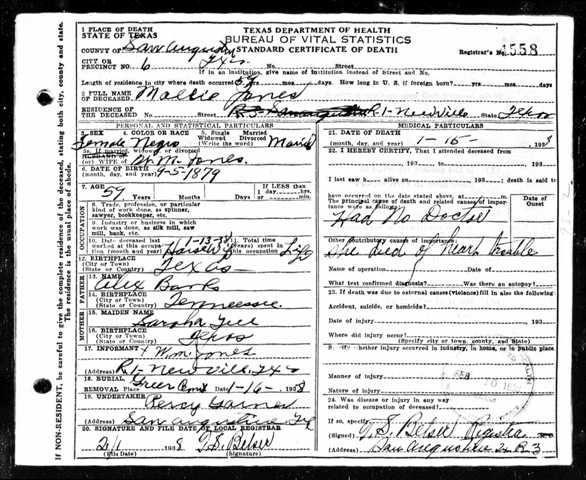 1 PLACE OF DEATH
STATE OF TEXAS
TEXAS DEPARTMENT OF HEALTH
BUREAU OF VITAL STATISTICS
STANDARD CERTIFICATE OF DEATH
COUNTY OF San Augustine
Registrar's No. 1558
CITY OR
PRECINCT NO. 6 Tex No. Street
If in an institution, give name of institution instead of Street and No.
Length of residence in city where death occurred yrs. mos. days. How long in U. S. if foreign born? yrs. mos. days
2 FULL NAME
OF DECEASED Jones
RESIDENCE OF
THE DECEASED No. Street R1 - New Willo State Texas
PERSONAL AND STATISTICAL PARTICULARS
3. SEX 4. COLOR OR RACE 5. Single Married Widowed Divorced (Write the word)
Female Negro Married
5a. If married, widowed or divorced
HUSBAND OF
(or) WIFE OF W. M. Jones
6. DATE OF BIRTH
(month, day, and year) 9-5-1879
7. AGE 57 Years Months Days
IF LESS THAN
1 day
hrs. min.
OCCUPATION
8. Trade, profession, or particular
kind of work done, as spinner,
sawyer, bookkeeper, etc.
9. Industry or business in which
work was done, as silk mill, saw
mill, bank, etc.
10. Date deceased last
worked at this occupation
(month and year) 1-13-38
11. Total time
(years) spent in
this occupation Life
12. BIRTHPLACE
(City or Town)
(State or Country) Texas
FATHER
13. NAME
Alex Banks
14. BIRTHPLACE
(City or Town)
(State or Country) Tennessee
MOTHER
15. MAIDEN NAME
16. BIRTHPLACE
(City or Town)
(State or Country) Texas
17. INFORMANT Wm Jones
(Address) R1 - New Willo, Tex
18. BURIAL
REMOVAL Place Greer Cem Date 1-16- 1938
19. UNDERTAKER
Percy Garner
(Address) San Augustine Tex
20. SIGNATURE AND FILE DATE OF LOCAL REGISTRAR
2/1 1938 T. S. Belser
(File Date) (Signature)
MEDICAL PARTICULARS
21. DATE OF DEATH
(month, day, and year) 1-16- 1938
22. I HEREBY CERTIFY, That I attended deceased from
193 to 193
I last saw h alive on 193 death is said to
have occurred on the date stated above, at m.
The principal cause of death and related causes of importance were as follows:
Date of Onset
Had No Doctor
Other contributory causes of importance:
She died of heart trouble
Name of operation Date of
What test confirmed diagnosis? Was there an autopsy?
23. If death was due to external causes (violence) fill in also the following
Accident, suicide, or homicide?
Date of injury 193
Where did injury occur?
(Specify city or town, county and state)
Specify whether injury occurred in industry, in home, or in public place
Manner of injury
Nature of injury
24. Was disease or injury in any way
related to occupation of deceased?
If so, specify
(Signed) T. S. Belser Registrar
(Address) San Augustine Tx R 3